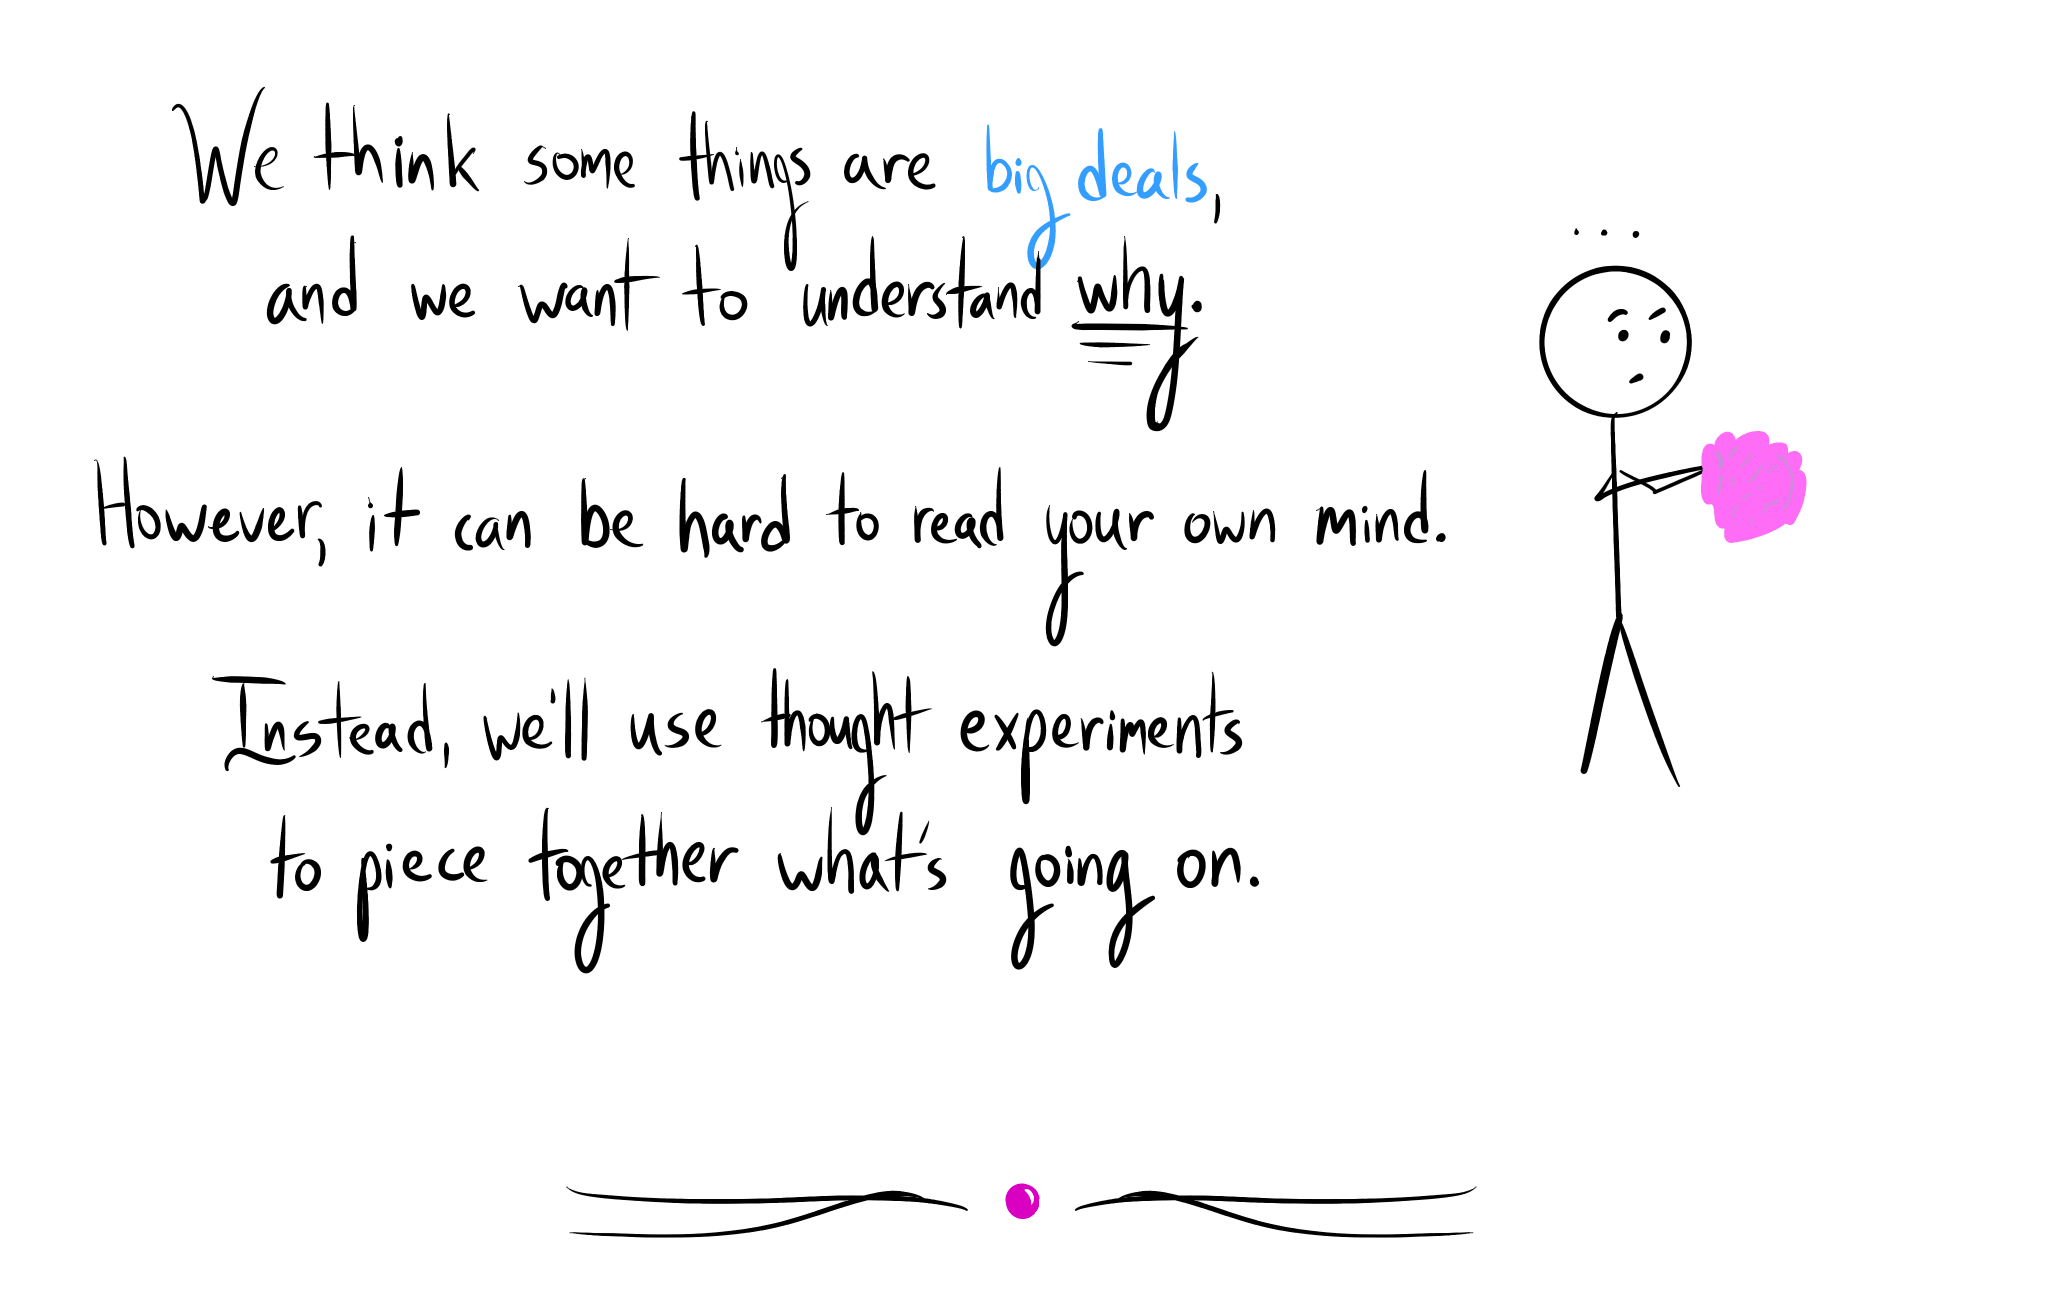 We think some things are big deals,
and we want to understand why.
However, it can be hard to read your own mind.
Instead, we'll use thought experiments
to piece together what's going on.
...